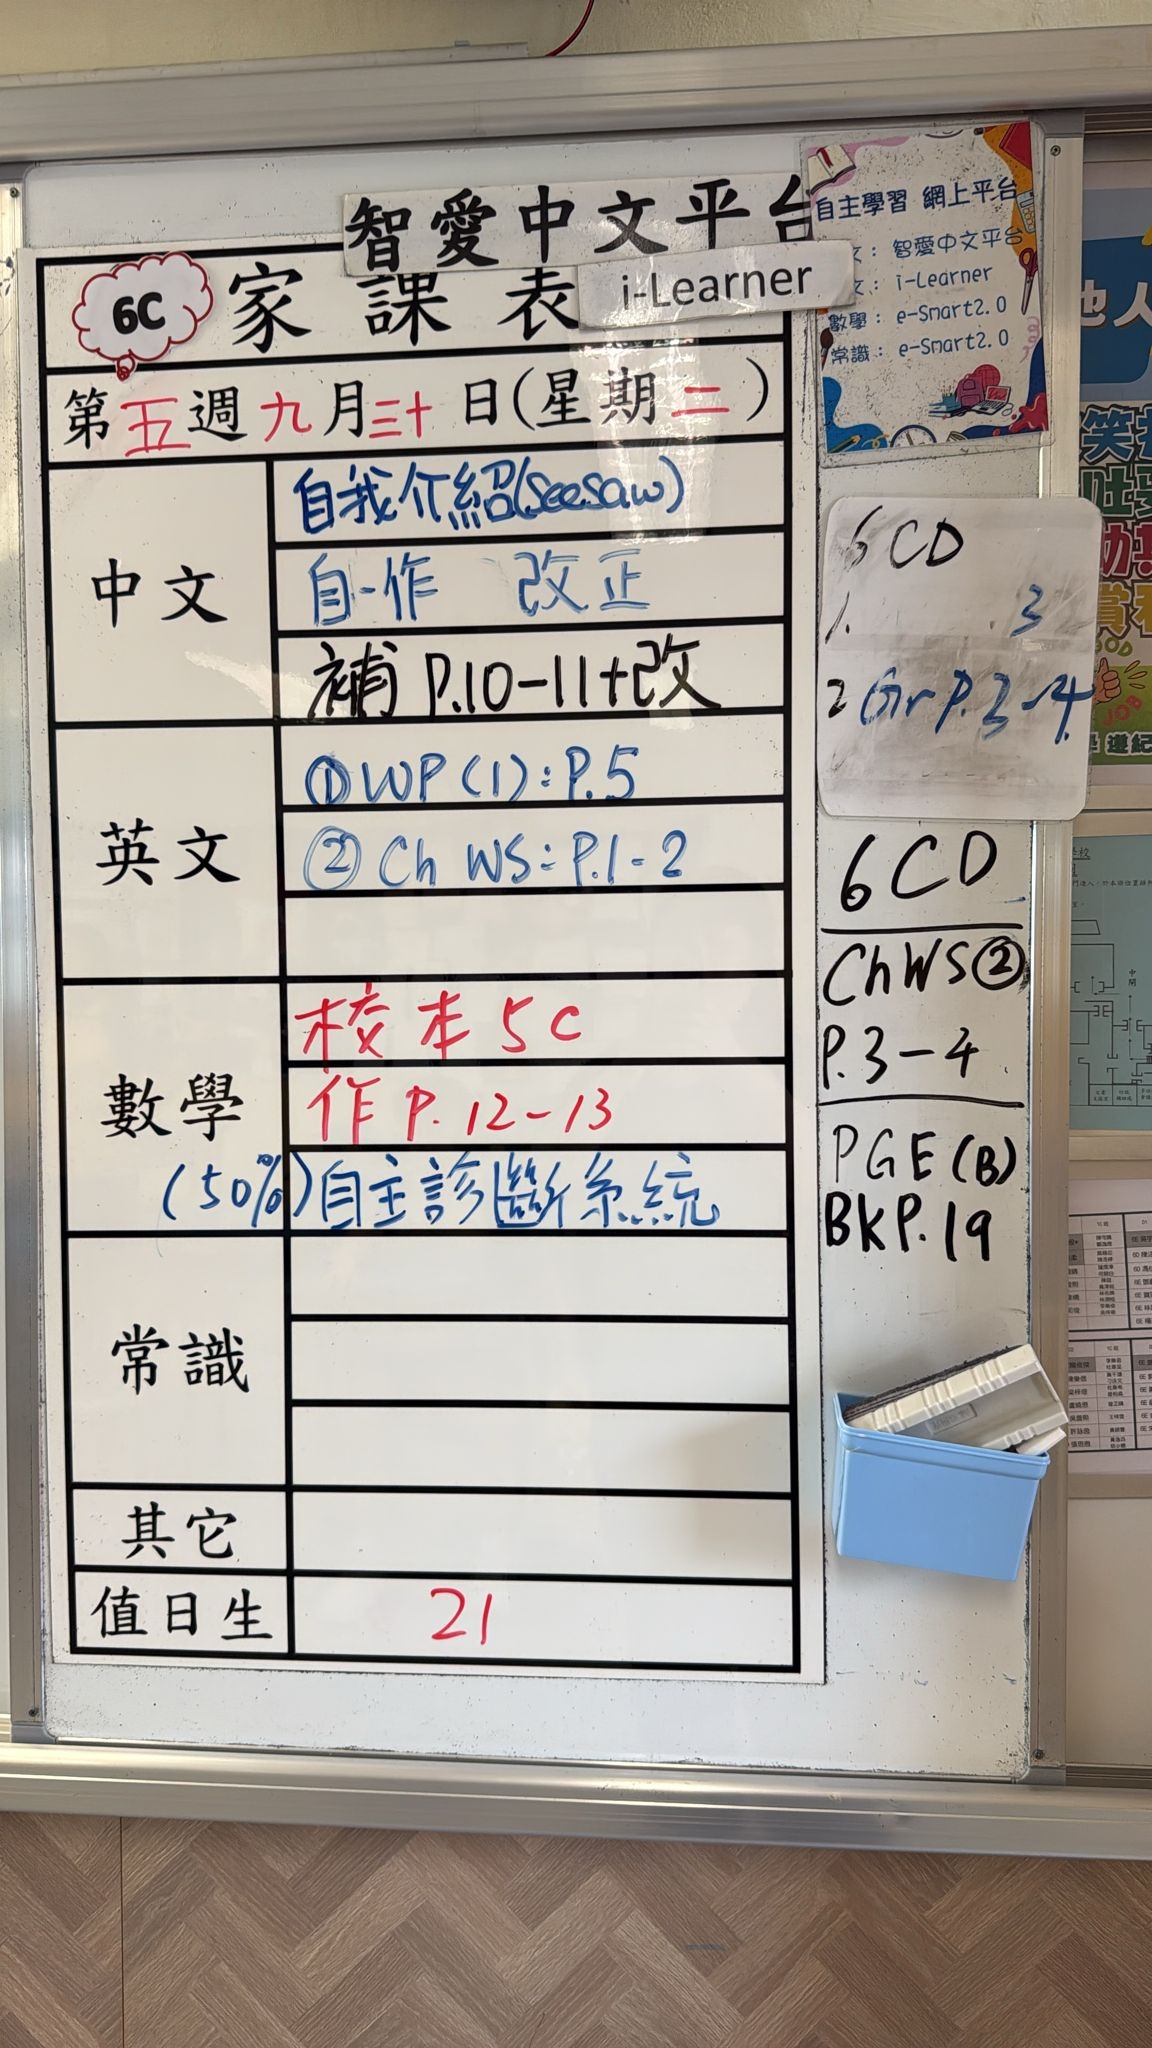 智愛中文平台
i-Learner
6C
家課表
第五週九月三十日(星期二)
中文
自我介紹(Seesaw)
自作 改正
補 P.10-11+改
英文
①WP(1):P.5
②Ch WS:P.1-2
數學
校本5C
作 P.12-13
(50%)自主診斷系統
常識
其它
值日生
21
自主學習 網上平台
文：智愛中文平台
文：i-Learner
數學：e-Smart2.0
常識：e-Smart2.0
6CD
1. 3
2 Gr P.3-4
6CD
ChWS②
P.3-4
PGE(B)
BKP.19
也人
JOB
遵紀
中閘